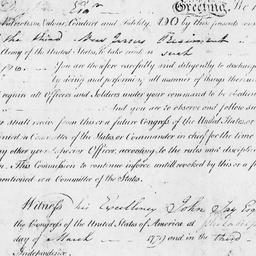 Greeting,
Patriotism, Valour, Conduct and Fidelity, DO by these presents
the third New Jersey Regiment
Army of the United States, to take rank as such
1778. You are therefore carefully and diligently to discharge
by doing and performing all manner of things thereun
require all Officers and Soldiers under your command to be obedient
And you are to observe and follow su
shall receive from this or a future Congress of the United States, or
Committee of the States, or Commander in chief for the time
other your superior Officer, according to the rules and discipline
This Commission to continue in force until revoked by this or a f
mentioned or a Committee of the States.
Witness his Excellency John Jay Esq
the Congress of the United States of America, at Philadelphia
day of March 1779 and in the third
Independence